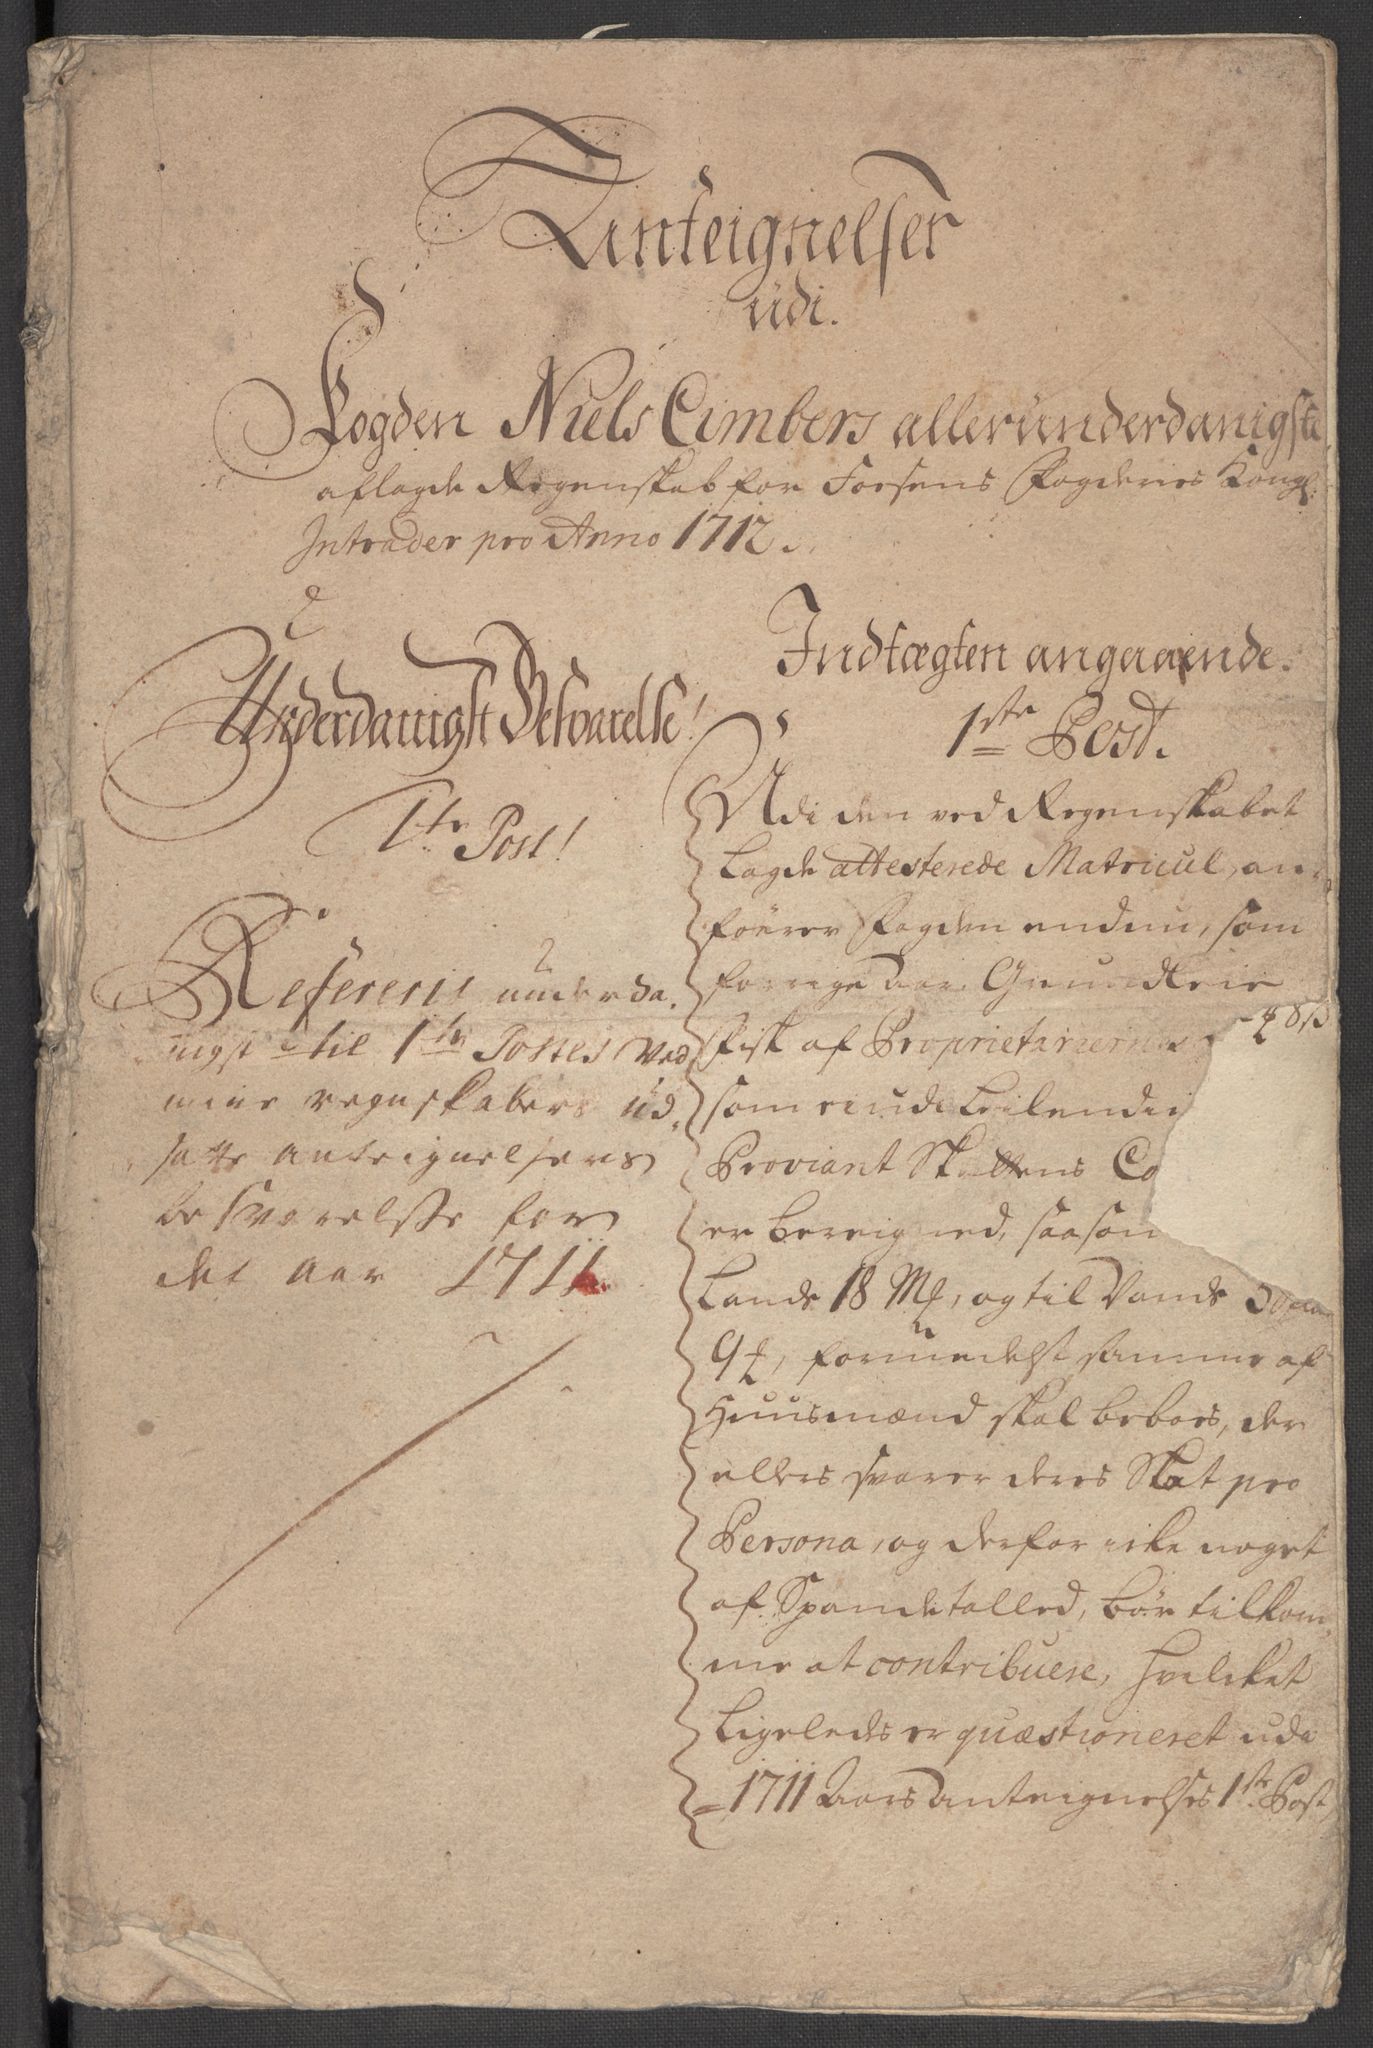 Anteignelser
udi.
Fogden Niels Cimbers allerunderdanigste
aflagde Regenskab for Fosens Fogderies Kongl:
Intrader pro Anno 1712.
Underdanigst Besvarelse!
1te Post!
Refereris underda,
nigst til 1te Postes ved
mine regnskabers ud,
satte anteignelsers
besvarelse for
det aar 1711.
Indtægten angaaende.
1ste Post.
Udi den ved Regenskabet
Lagde attesterede Matricul, an,
förer Fogden endnu, som
forrige aar Grundleie
fisk af Proprietariernes
som ei udi Leilendi
Proviant Skattens Co
er bereigned, saasom
Lands 18 Mk, og til Vands
9 formedelst samme af
Huusmænd skal beboes, der
ellers svarer deres Skat pro
Persona, og derfor icke noget
af Spandetalled, bör tilkom,
me at contribuere, hvilcket
Ligeleds er quæstioneret udi
1711 Aars anteignelses 1ste Post